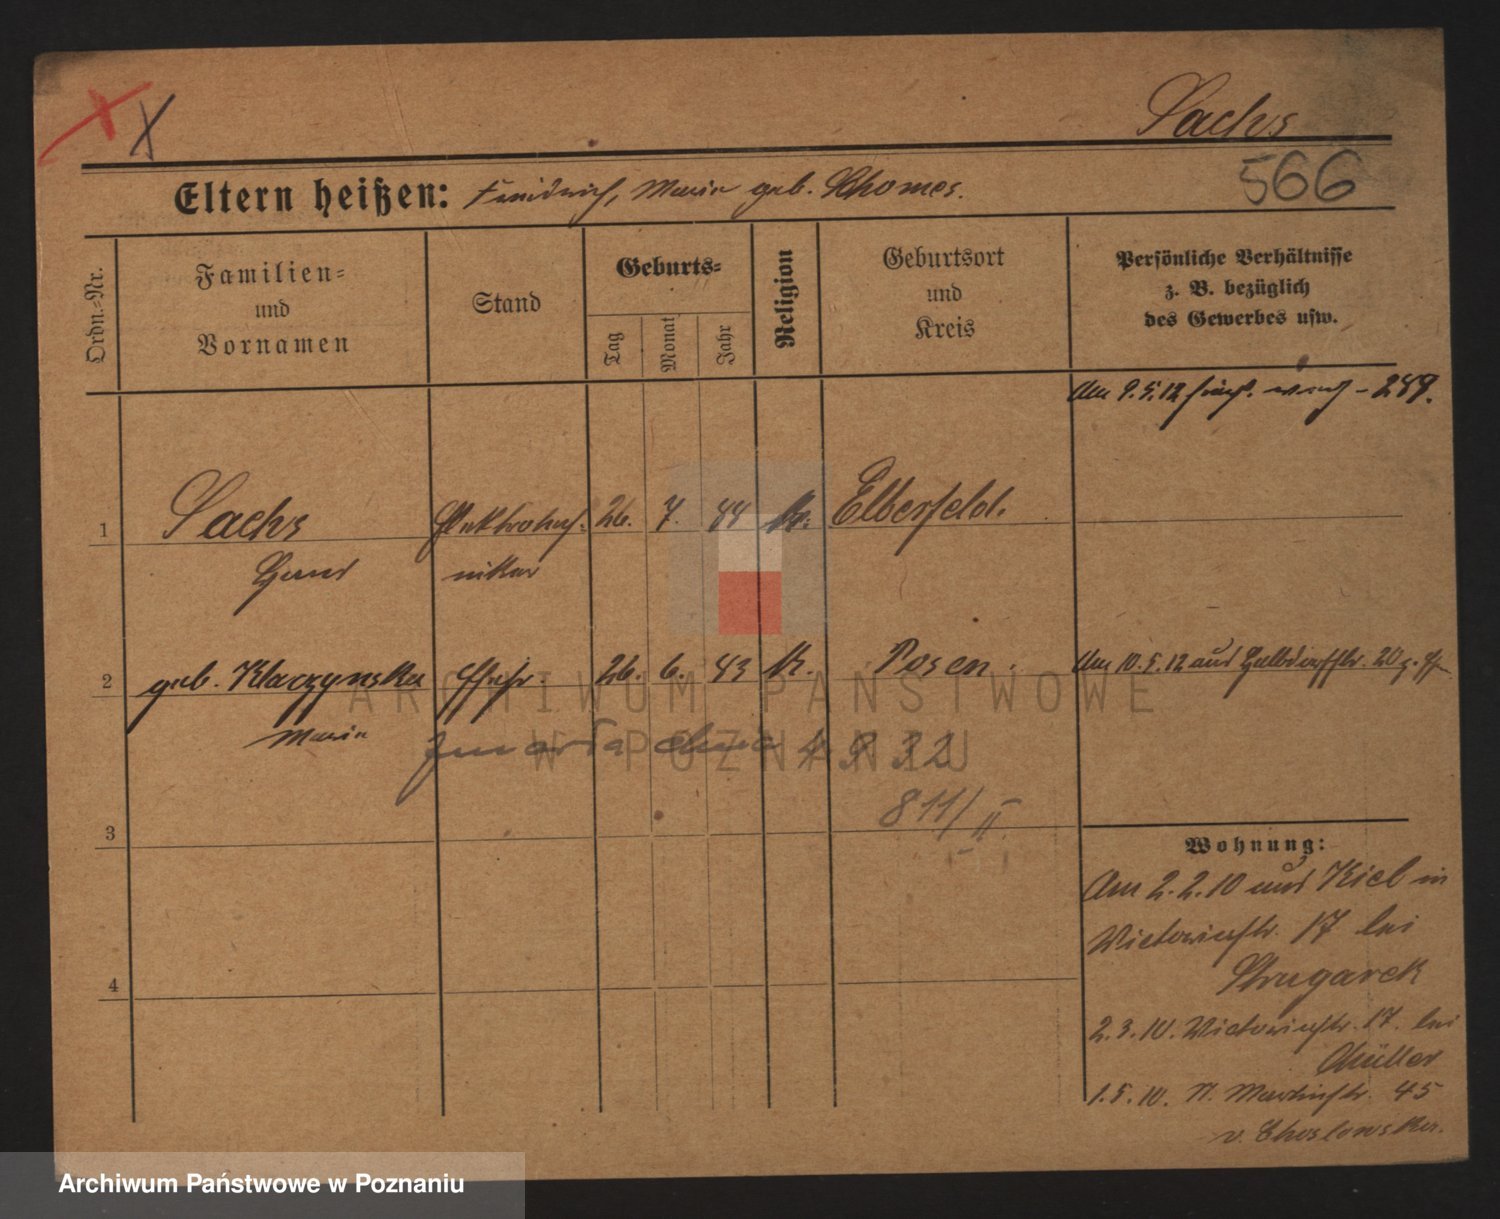 Sachs
566
Eltern heißen: Friedrich, Maria geb. Thomes.
Ordn.-Nr.
Familien-
und
Vornamen
Stand
Geburts-
Tag
Monat
Jahr
Religion
Geburtsort
und
Kreis
Persönliche Verhältnisse
z. B. bezüglich
des Gewerbes usw.
Am 9.5.12 - 289.
1 Sachs Elektrotech- 26. 7. 44 K. Elberfeld.
niker
2 geb. Klaczynska Ehefr. 26. 6. 43 K. Posen. Am 10.5.12 aus 20
Maria
zmarła dnia 4 9 32
811/II.
3
Wohnung:
Am 2.2.10 aus Kiel in
Victoriastr. 17 bei
Strugarek
4
2.3.10. Victoriastr. 17. bei
Müller
1.5.10. St. Martinstr. 45
v. Choslowska.
ARCHIWUM PAŃSTWOWE
W POZNANIU
Archiwum Państwowe w Poznaniu